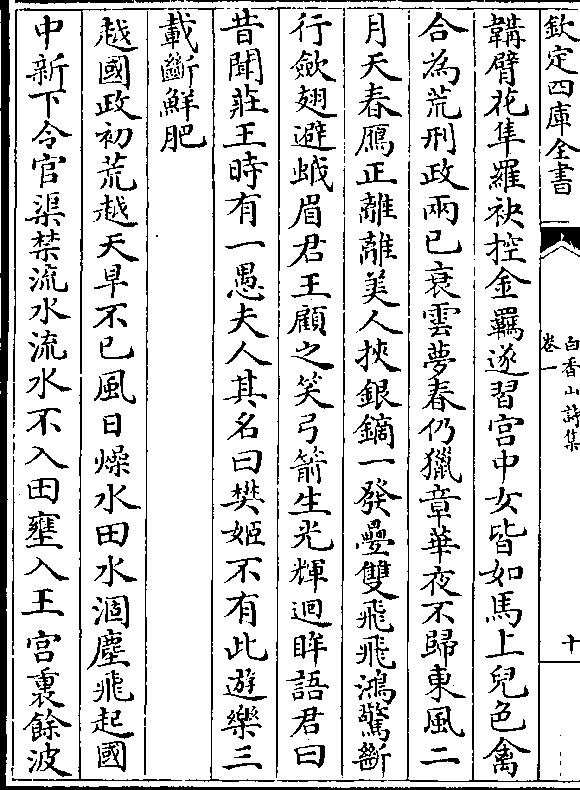 欽定四庫全書
白香山詩集
卷一
十
韝臂花隼羅袂控金羈遂習宫中女皆如馬上兒色禽
合為荒刑政兩已衰雲夢春仍獵章華夜不歸東風二
月天春鴈正離離美人挾銀鏑一發疊雙飛飛鴻驚斷
行斂翅避蛾眉君王顧之笑弓箭生光輝迴眸語君曰
昔聞莊王時有一愚夫人其名曰樊姬不有此遊樂三
載斷鮮肥
越國政初荒越天旱不已風日燥水田水涸塵飛起國
中新下令官渠禁流水流水不入田壅入王宫裏餘波